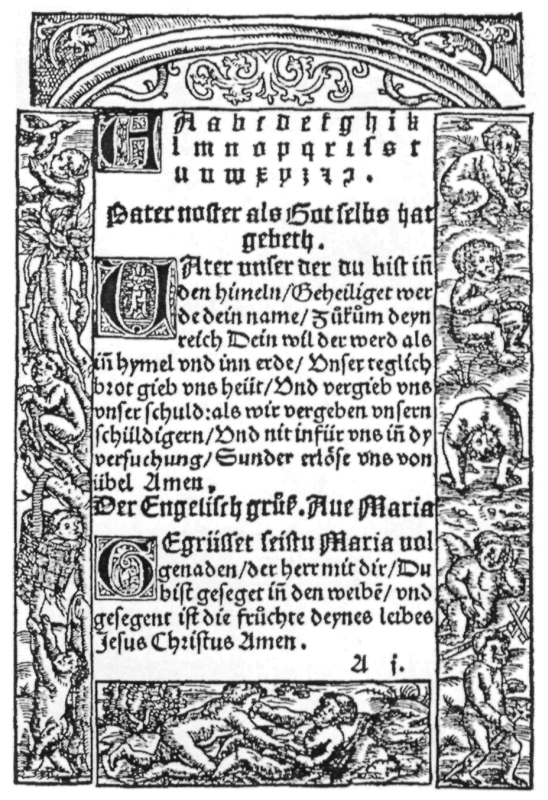 A A a b c d e f g h i k
l m n o p q r ı ſ s t
u v w x y z ꝛ ꝯ.
Pater noſter als Got ſelbs hat
gebeth.
VAter vnſer der du biſt iñ
den himeln/Geheiliget wer
de dein name/Zůkům deyn
reich Dein wil der werd als
iñ hymel vnd inn erde/Vnſer teglich
brot gieb vns heüt/Vnd vergieb vns
vnſer ſchuld:als wir vergeben vnſern
ſchüldigern/Vnd nit infür vns iñ dy
verſuchung/Sunder erlöſe vns von
übel Amen.
Der Engeliſch grůß.Aue Maria
GEgrüſſet ſeiſtu Maria vol
genaden/der herr mit dir/Du
biſt geſeget iñ den weibẽ/vnd
geſegent iſt die frůchte deynes leibes
Jeſus Chriſtus Amen.
A j.